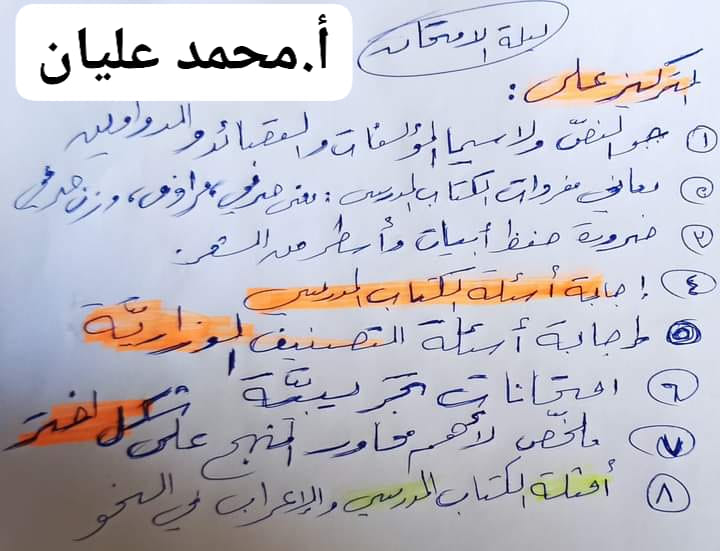 أ.محمد عليان
ليلة الامتحان
التركيز على:
١ جو النصّ ولاسيما المؤلفات والقصائد والدواوين
٢ معاني مفردات الكتاب المدرسي: معنى صرفي، مرادف، وزن صرفي
٣ ضرورة حفظ أبيات وأسطر من الشعر.
٤ إجابة أسئلة الكتاب المدرسي
٥ إجابة أسئلة التصنيف الوزاريّة
٦ امتحانات تجريبيَّة
٧ ملخّص لأهم محاور المنهج على شكل
٨ أمثلة الكتاب المدرسي والإعراب في النحو